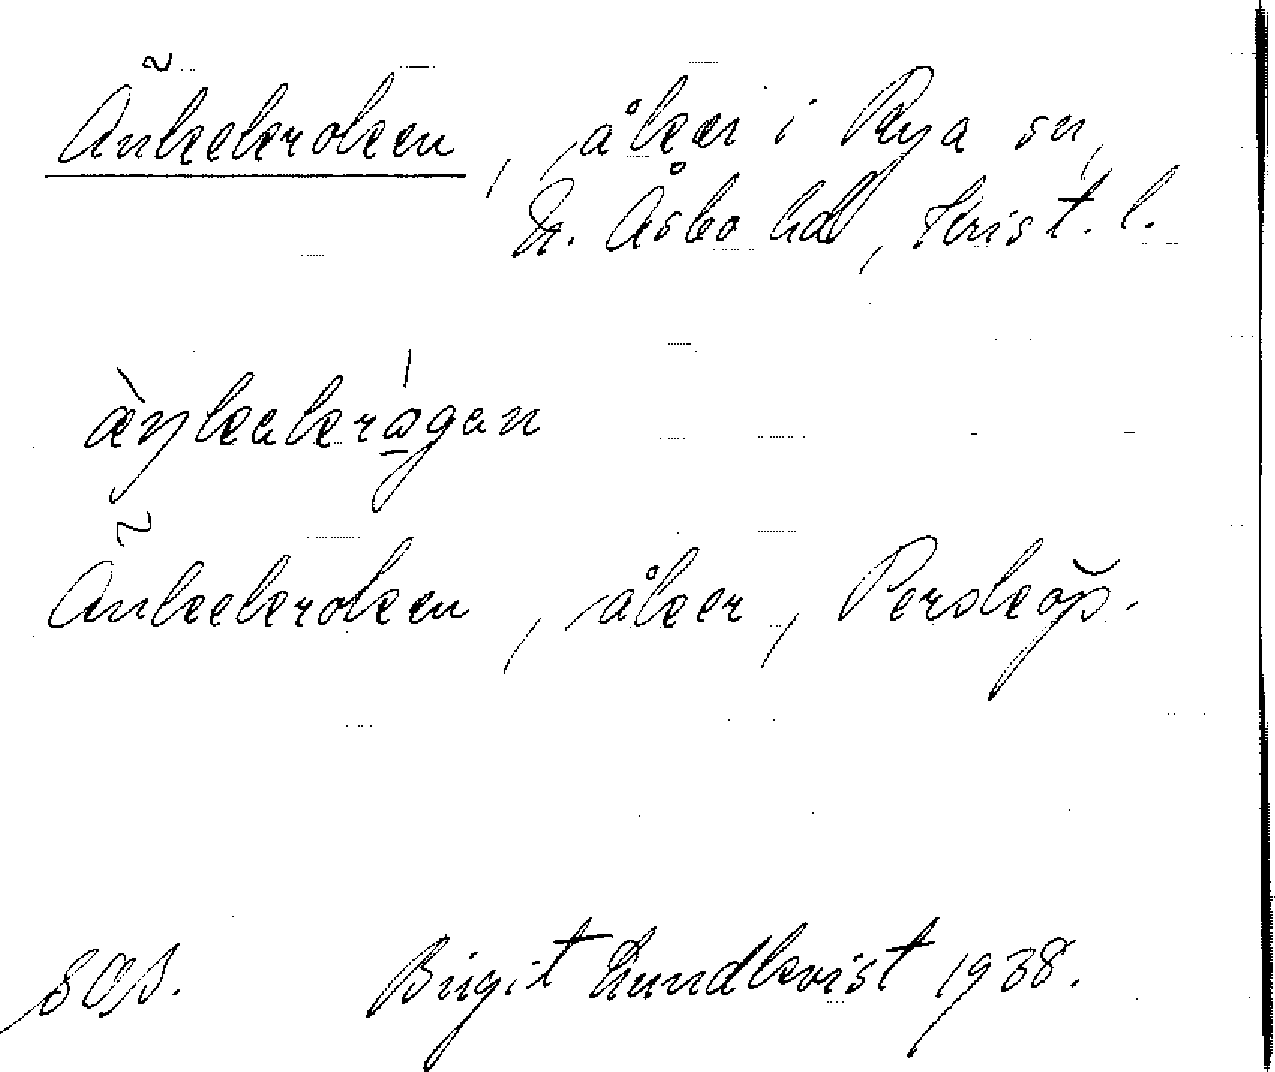 Änkekroken, åker i Rya sn,
N. Åsbo hd, Krist. l.
æ̀ŋkakrågan
Änkekroken, åker, Persköp.
SOS. Birgit Lundkvist 1938.